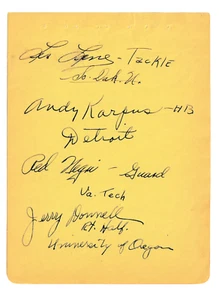 Leo - Tackle
So. Dak. U.
Andy Karpus - HB
Detroit
Red - Guard
Va. Tech
Jerry Donnell
Rt. Half.
University of Oregon